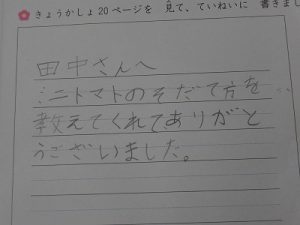 きょうかしょ20ページを 見て、ていねいに 書きまし
田中さんへ
ミニトマトのそだて方を
教えてくれてありがと
うございました。